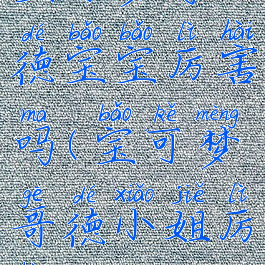 dé bǎo bǎo lì hài
德宝宝厉害
ma bǎo kě mèng
吗(宝可梦
ge dé xiǎo jiě lì
哥德小姐厉